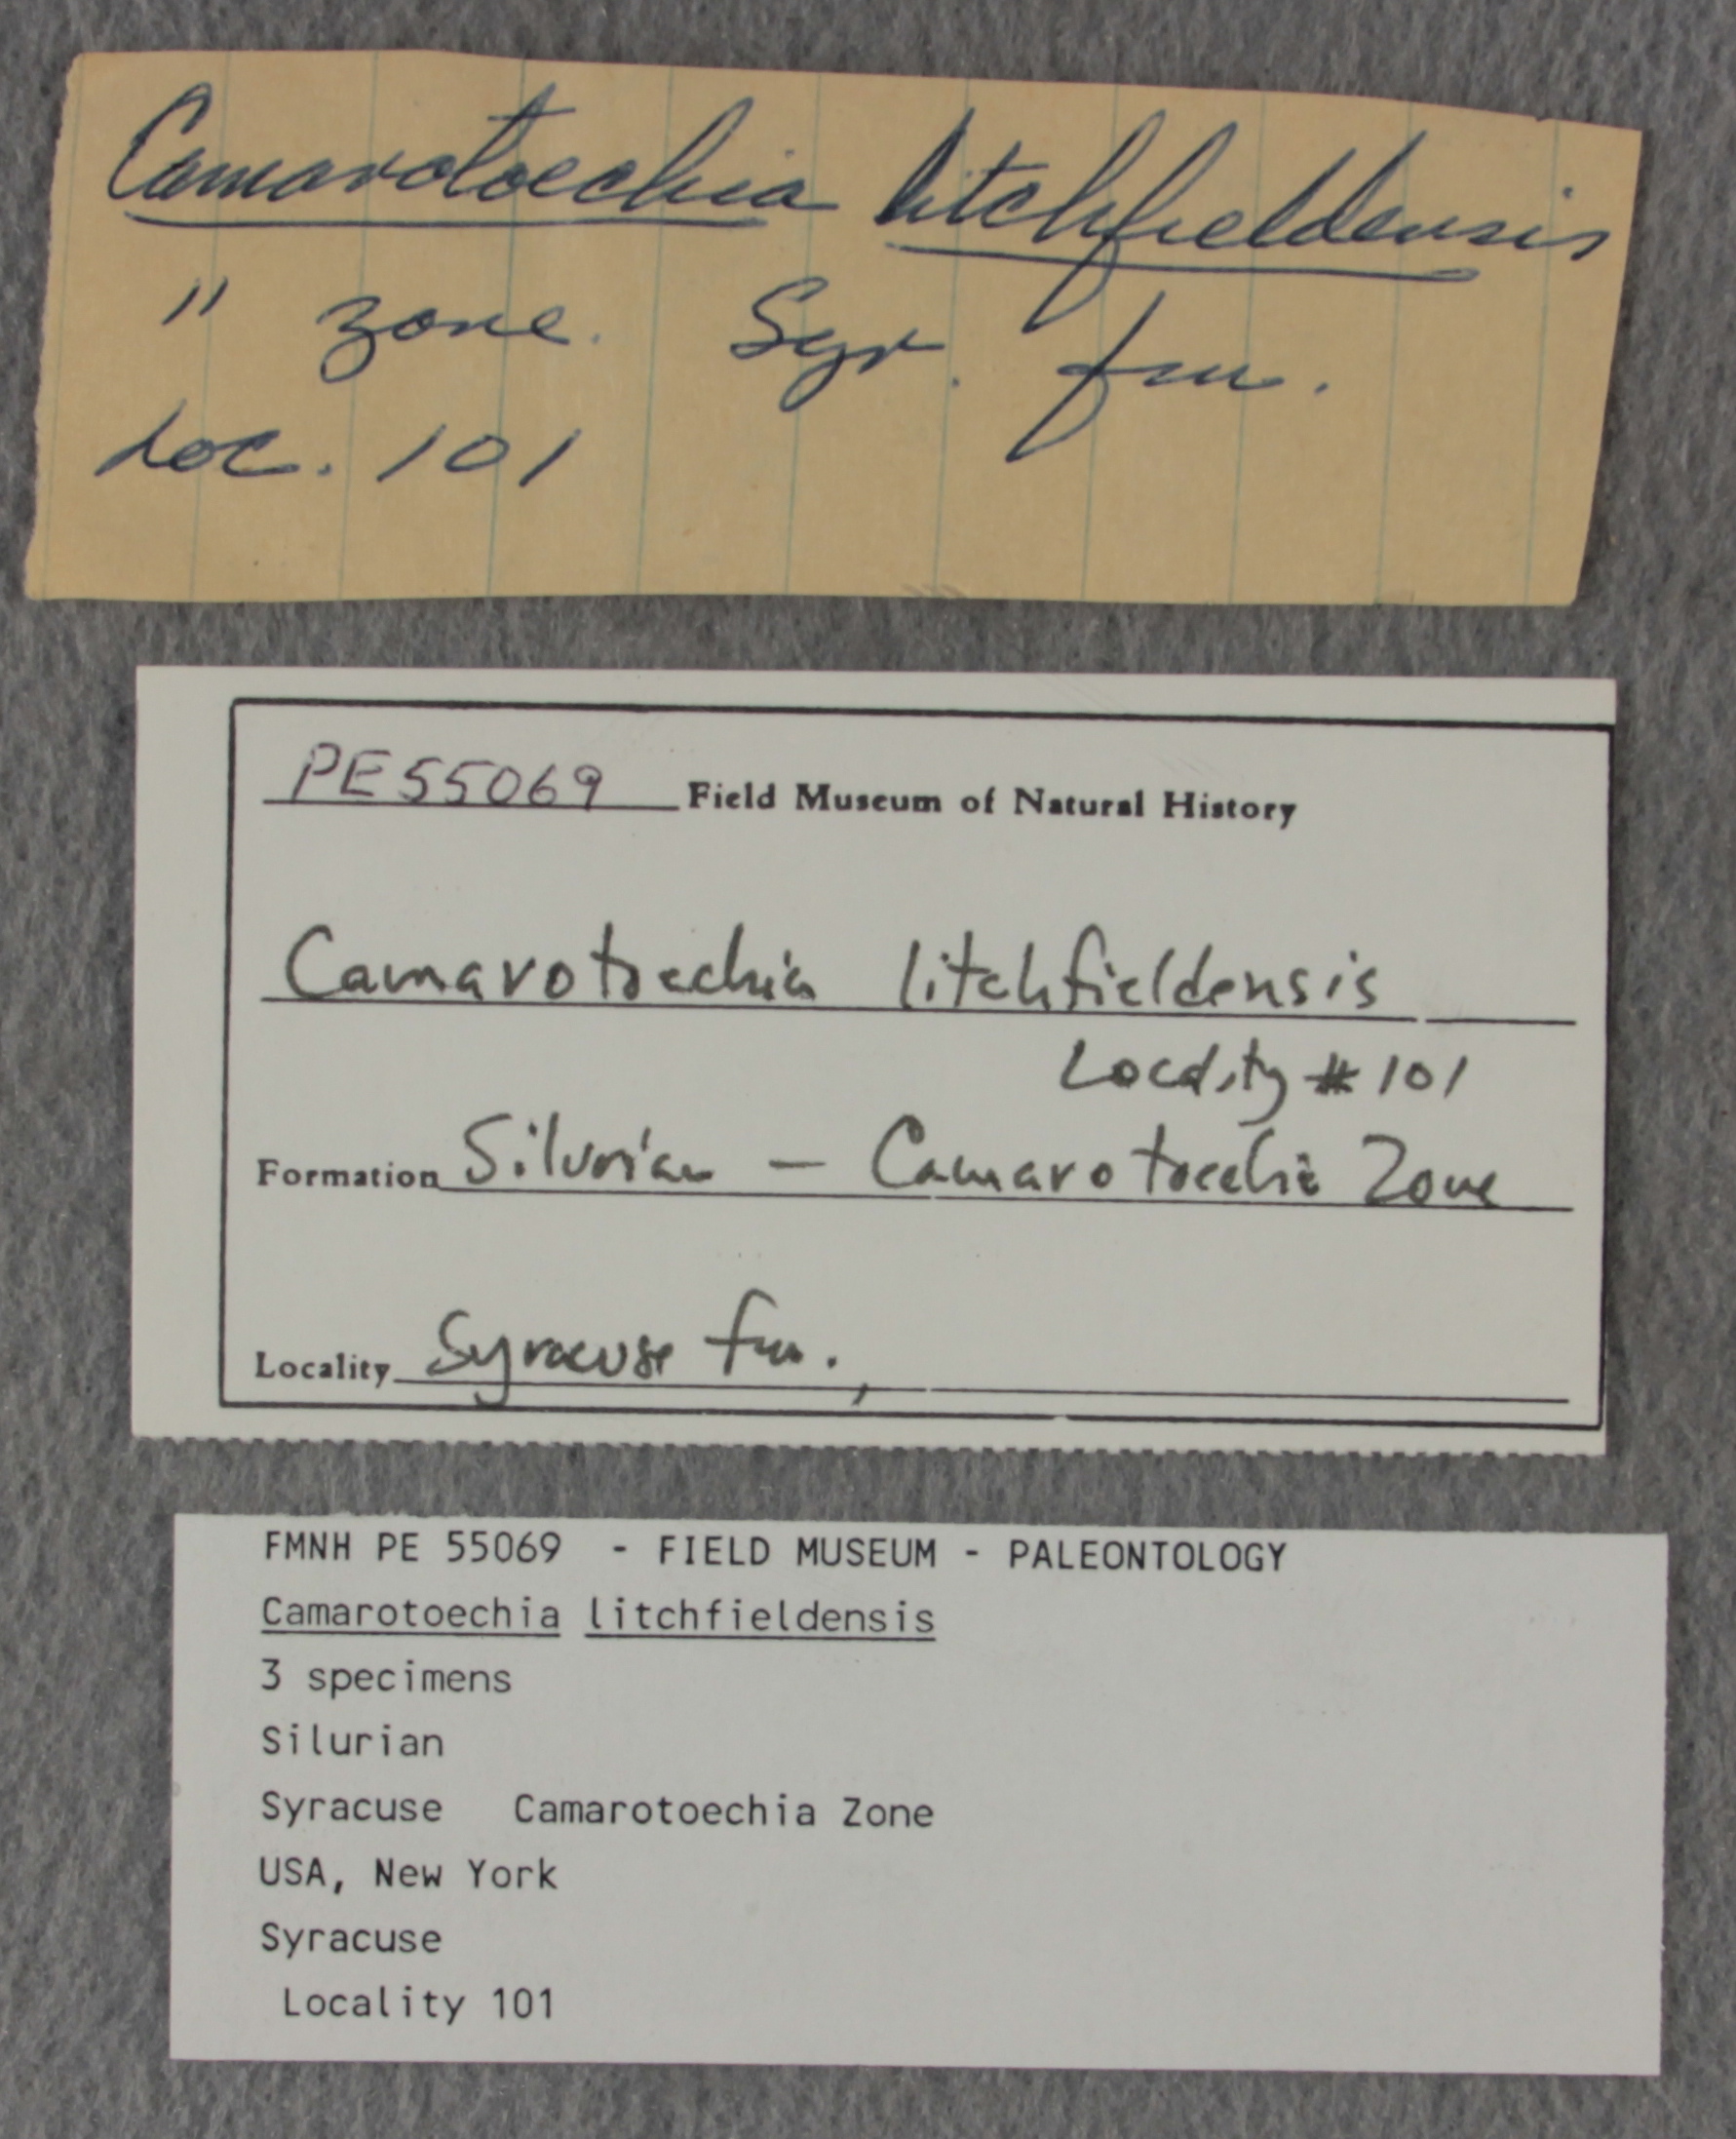 Camarotoechia litchfieldensis
" zone. Syr. fm.
Loc. 101
PE55069 Field Museum of Natural History
Camarotoechia litchfieldensis
Locality # 101
Formation Silurian — Camarotoechia Zone
Locality Syracuse fm.,
FMNH PE 55069 - FIELD MUSEUM - PALEONTOLOGY
Camarotoechia litchfieldensis
3 specimens
Silurian
Syracuse Camarotoechia Zone
USA, New York
Syracuse
Locality 101